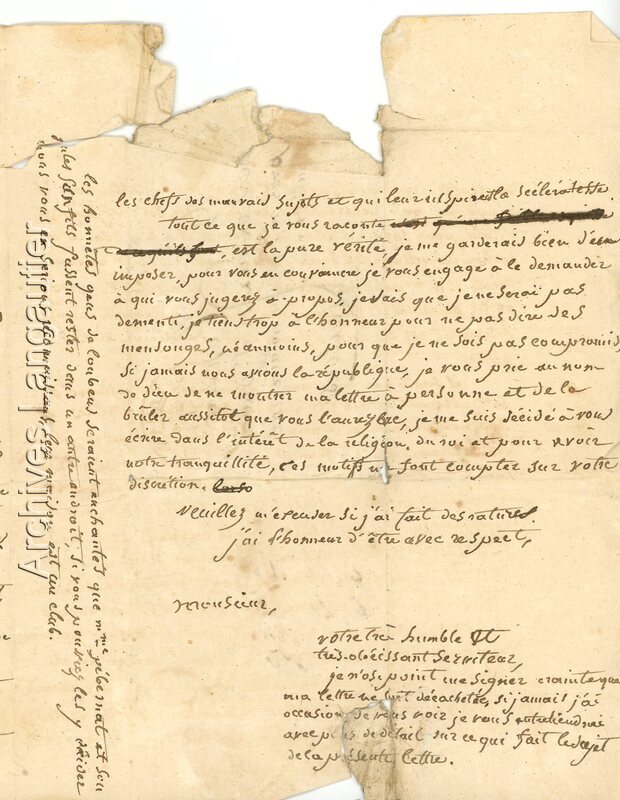 les chefs des mauvais sujets et qui leur inspire la scéleratesse
tout ce que je vous raconte
, est la pure vérité, je me garderais bien d'en
imposer, pour vous en convaincre je vous engage à le demander
à qui vous jugerez à-propos, je vais que je ne serai pas
dementi, je tiens trop à l'honneur pour ne pas dire des
mensonges, néanmoins, pour que je ne sois pas compromis,
si jamais nous avions la république, je vous prie au nom
de dieu de ne montrer ma lettre à personne et de la
brûler aussitot que vous l'aurez lue, je me suis décidé à vous
ecrire dans l'intérêt de la religion, du roi et pour avoir
notre tranquillité, ces motifs me font compter sur votre
discretion.
Veuillez m'excuser si j'ai fait des ratures.
j'ai l'honneur d'être avec respect,
Monsieur,
votre très humble et
très-obéissant serviteur,
je n'ose point me signer crainte que
ma lettre ne soit décachetée, si jamais j'ai
occasion de vous voir je vous entretiendrai
avec plus de detail sur ce qui fait le sujet
de la présente lettre.
les honnêtes gens de loubens seraient enchantés que mme pibernat et son
fils fussent rester dans un autre endroit, si vous pouviez les y décider
nous vous en serions, leur maison est un club.
Archives Lamazelier